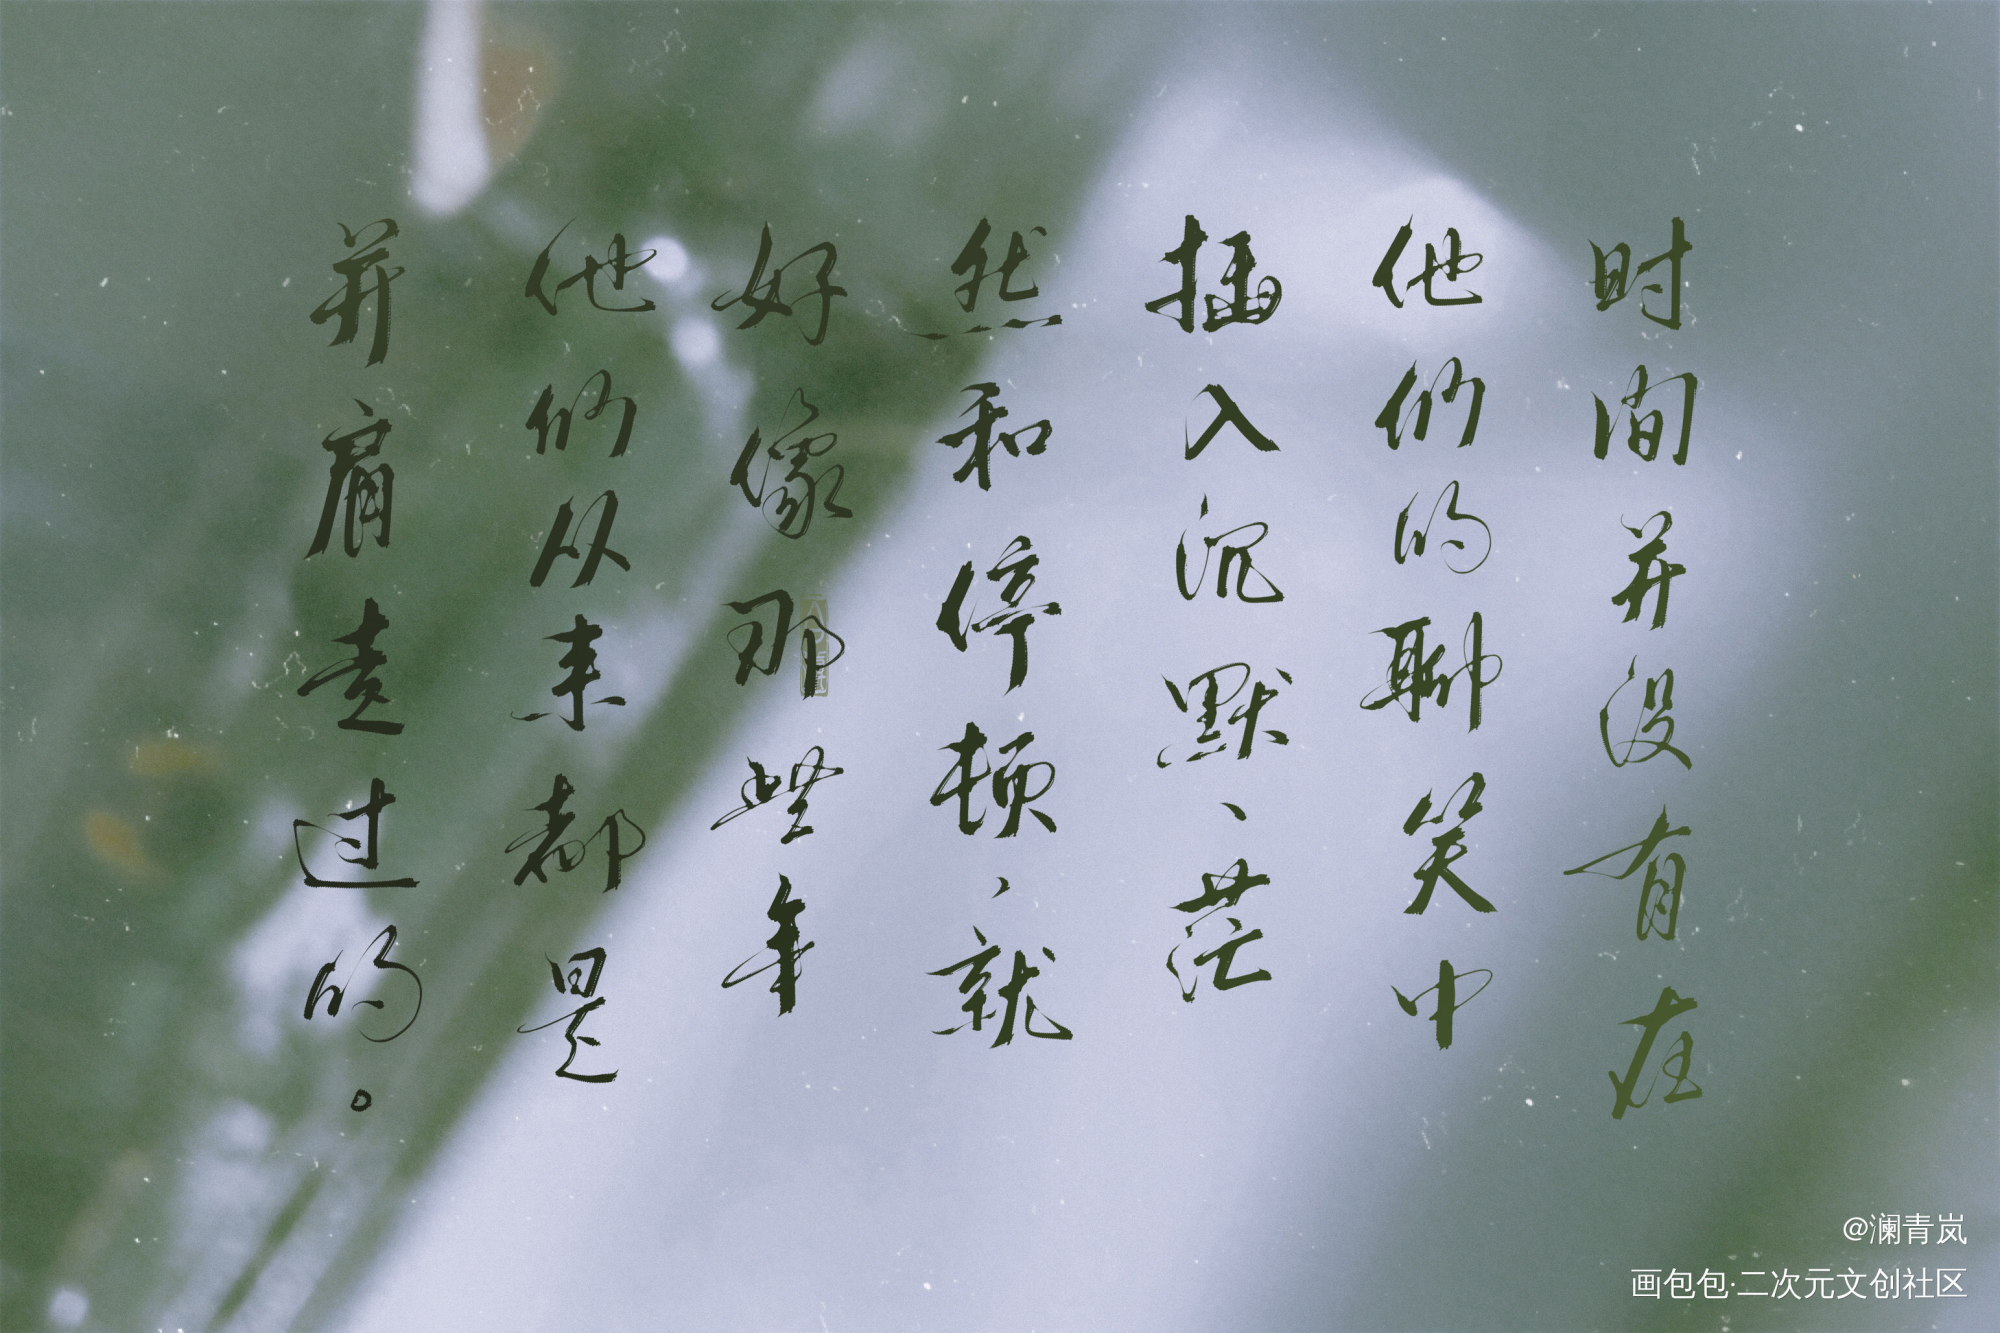 时间并没有在
他们的聊笑中
插入沉默、茫
然和停顿，就
好像那些年
他们从来都是
并肩走过的。
@澜青岚
画包包·二次元文创社区